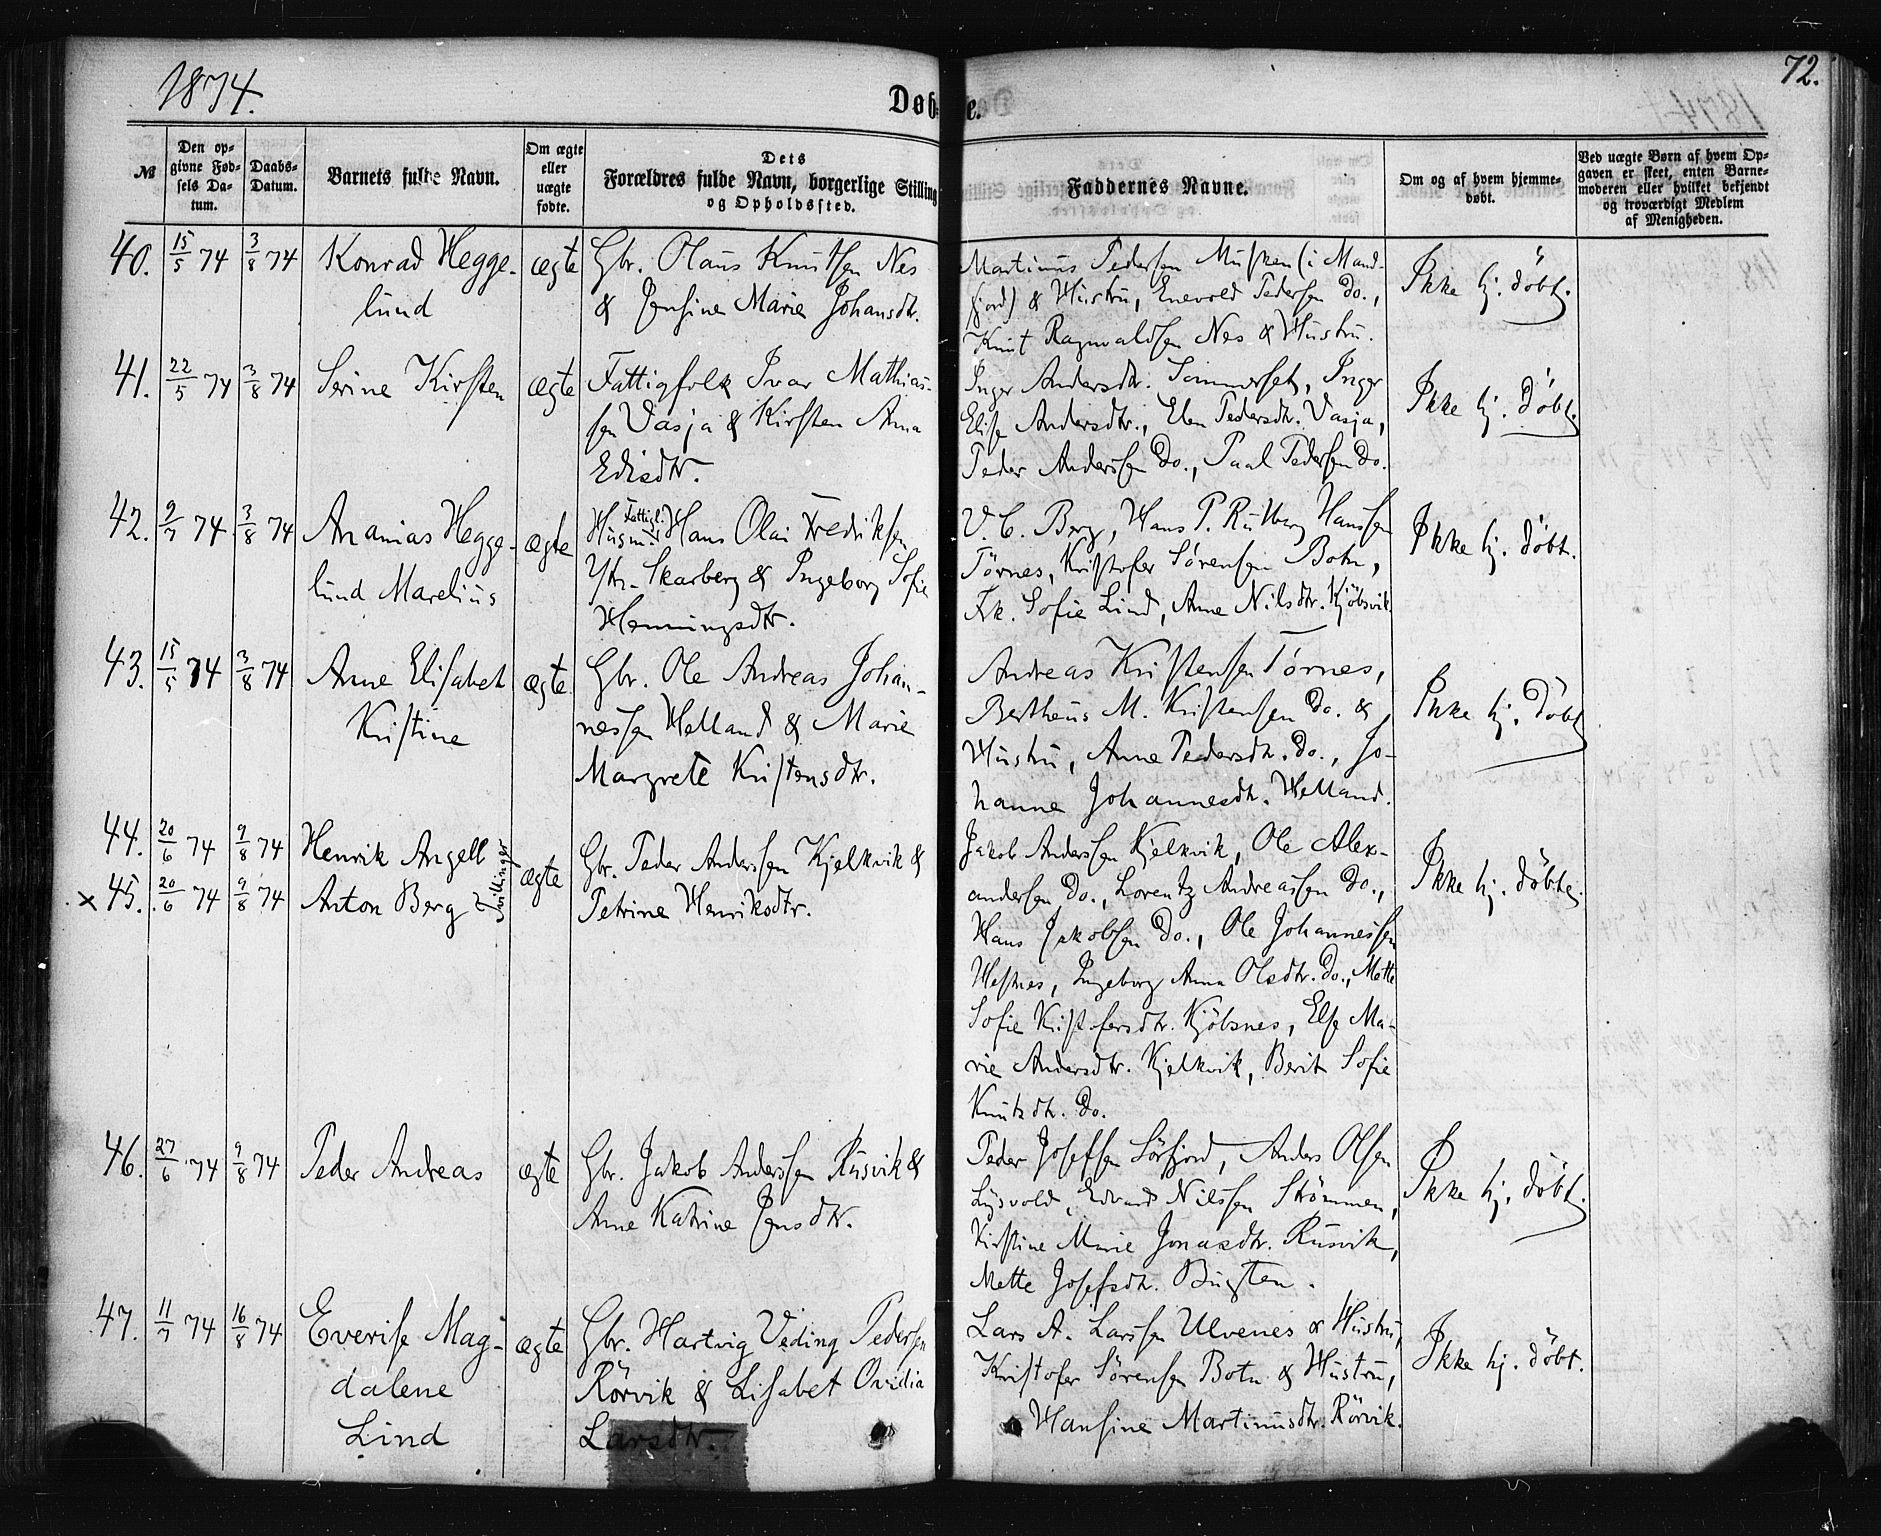 1874.
72.
Døbte.
№
Den op-
givne Fød-
sels Da-
tum.
Daabs-
Datum.
Barnets fulde Navn.
Om ægte
eller
uægte
fødte.
Dets
Forældres fulde Navn, borgerlige Stilling
og Opholdssted.
Faddernes Navne.
Om og af hvem hjemme-
døbt.
Ved uægte Børn af hvem Op-
gaven er skeet, enten Barne-
moderen eller hvilket bekjendt
og troværdigt Medlem
af Menigheden.
40. 15/5 74 3/8 74
Konrad Hegge-
lund
ægte
Gbr. Olaus Knutsen Nes
& Jensine Marie Johansdtr.
Martinus Pedersen Musken (i Mand-
fjord) & Hustru, Enevold Pedersen Do.,
Knut Ragnvaldsen Nes & Hustru.
Ikke hj. døbt.
41. 22/5 74 3/8 74
Serine Kirsten
ægte
Fattigfolk Ivar Mathias-
sen Vasja & Kirsten Anna
Edisdtr.
Inger Andersdtr. Sommerset, Inger
Elise Andersdtr., Elen Pedersdtr. Vasja,
Peder Anderssen Do., Paal Pedersen Do.
Ikke hj. døbt.
42. 9/7 74 3/8 74
Ananias Hegge-
lund Marelius
ægte
Fattigl.
Husm. Hans Olai Fredriksen
Ytr. Skarberg & Ingeborg Sofie
Henningsdtr.
V. C. Berg, Hans P. Rutberg Hanssen
Törnes, Kristofer Sørensen Botn,
Frk. Sofie Lind, Anne Nilsdtr. Kjöbsvik
Ikke hj. döbt.
43. 15/5 74 3/8 74
Anne Elisabet
Kristine
ægte
Gbr. Ole Andreas Johan-
nessen Helland & Marie
Margrete Kristensdtr.
Andreas Kristensen Tørnes,
Bertheus M. Kristensen Do. &
Hustru, Anne Pedersdtr. Do., Jo-
hanne Johannesdtr. Helland.
Ikke hj. Döbt
44. 20/6 74 9/8 74
Henrik Angell
x 45. 20/6 74 9/8 74
Anton Berg
Tvillinger
ægte
Gbr. Peder Anderssen Kjelkvik &
Petrine Henriksdtr.
Jakob Anderssen Kjelkvik, Ole Alex-
andersen Do., Lorentz Andreassen Do.,
Hans Jakobsen Do., Ole Johannessen
Hestnes, Ingeborg Anna Olsdtr. Do., Mette
Sofie Kristofersdtr. Kjöbsnes, Else Ma-
rie Andersdtr. Kjelkvik, Berit Sofie
Knutsdtr. Do.
Ikke hj. döbte.
46. 27/6 74 9/8 74
Peder Andreas
ægte
Gbr. Jakob Anderssen Rusvik &
Anne Katrine Jensdtr.
Peder Josefsen Sörfjord, Anders Olsen
Lysvold, Edvard Nilssen Strömmen,
Kirstine Marie Jonasdtr. Rusvik,
Mette Josefsdtr. Bugten.
Ikke hj. döbt.
47. 11/7 74 16/8 74
Everise Mag-
dalene
Lind
ægte
Gbr. Hartvig Veding Pedersen
Rörvik & Lisabet Ovidia
Larsdtr.
Lars A. Larssen Ulvenes & Hustru,
Kristofer Sørensen Botn & Hustru,
Hansine Martinusdtr. Rörvik.
Ikke hj. döbt.